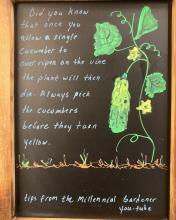 Did you know
that once you
allow a single
cucumber to
over ripen on the vine
the plant will then
die. Always pick
the cucumbers
before they turn
yellow.
tips from the Millennial Gardener
you-tube